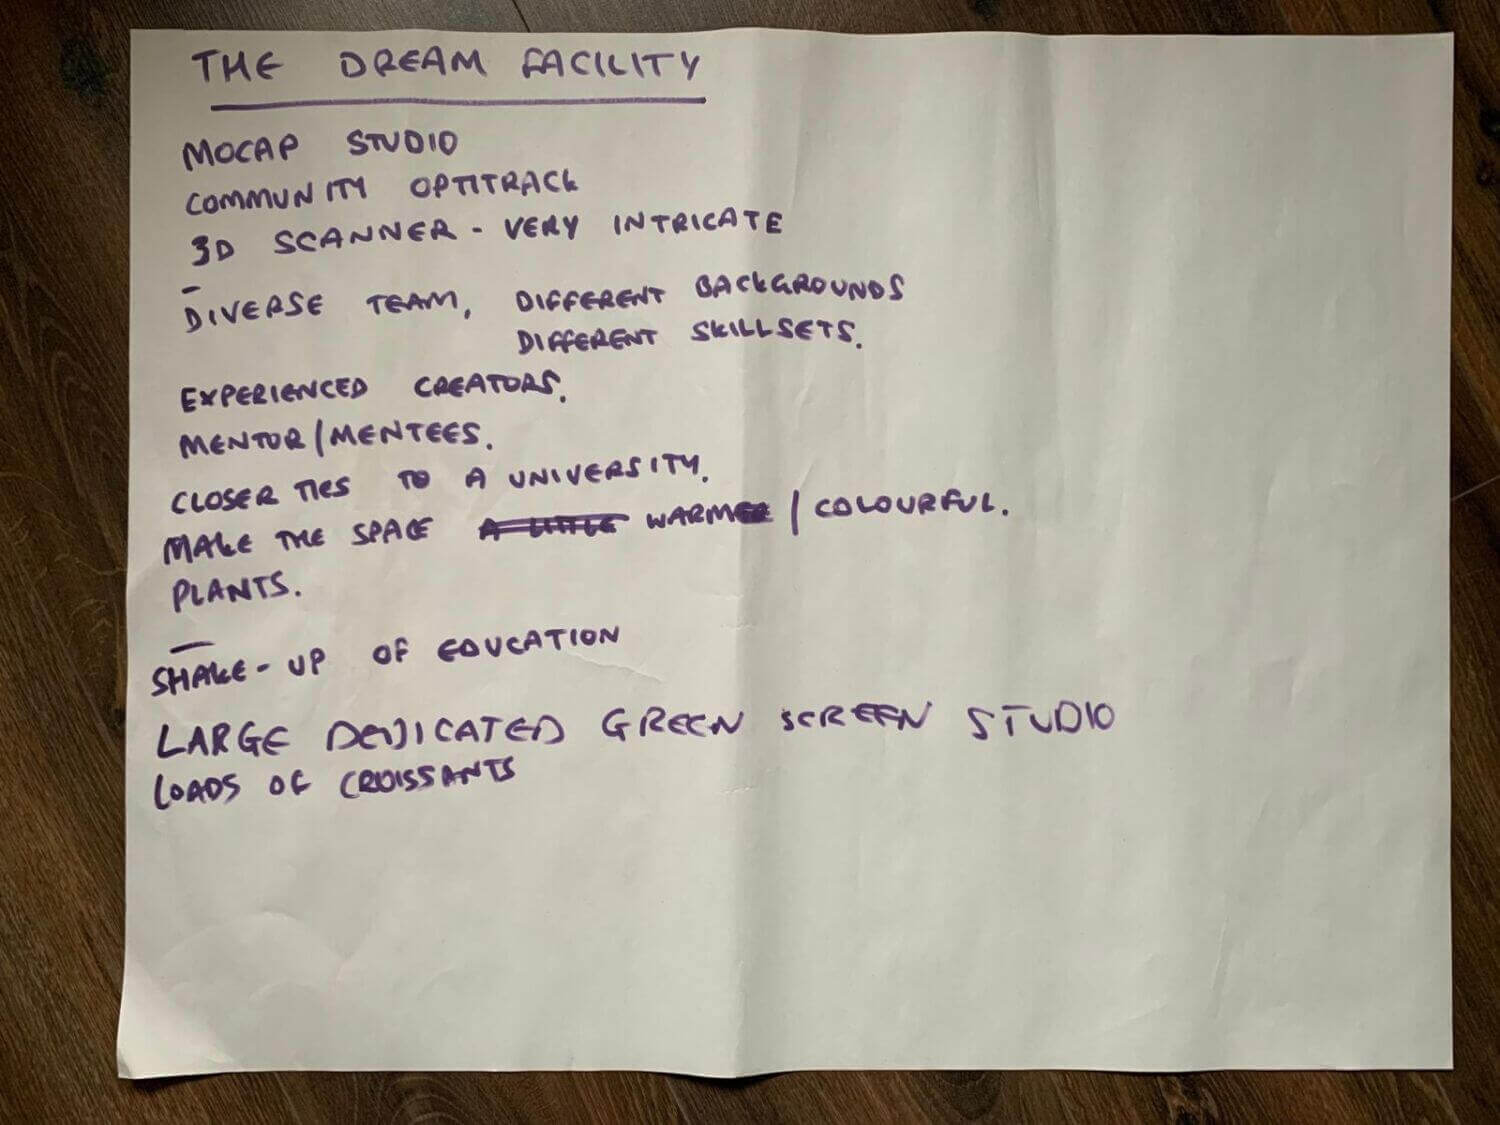 THE DREAM FACILITY
MOCAP STUDIO
COMMUNITY OPTITRACK
3D SCANNER - VERY INTRICATE
-
DIVERSE TEAM, DIFFERENT BACKGROUNDS
DIFFERENT SKILLSETS.
EXPERIENCED CREATORS.
MENTOR/MENTEES.
CLOSER TIES TO A UNIVERSITY.
MAKE THE SPACE A LITTLE WARMER / COLOURFUL.
PLANTS.
-
SHAKE-UP OF EDUCATION
LARGE DEDICATED GREEN SCREEN STUDIO
LOADS OF CROISSANTS